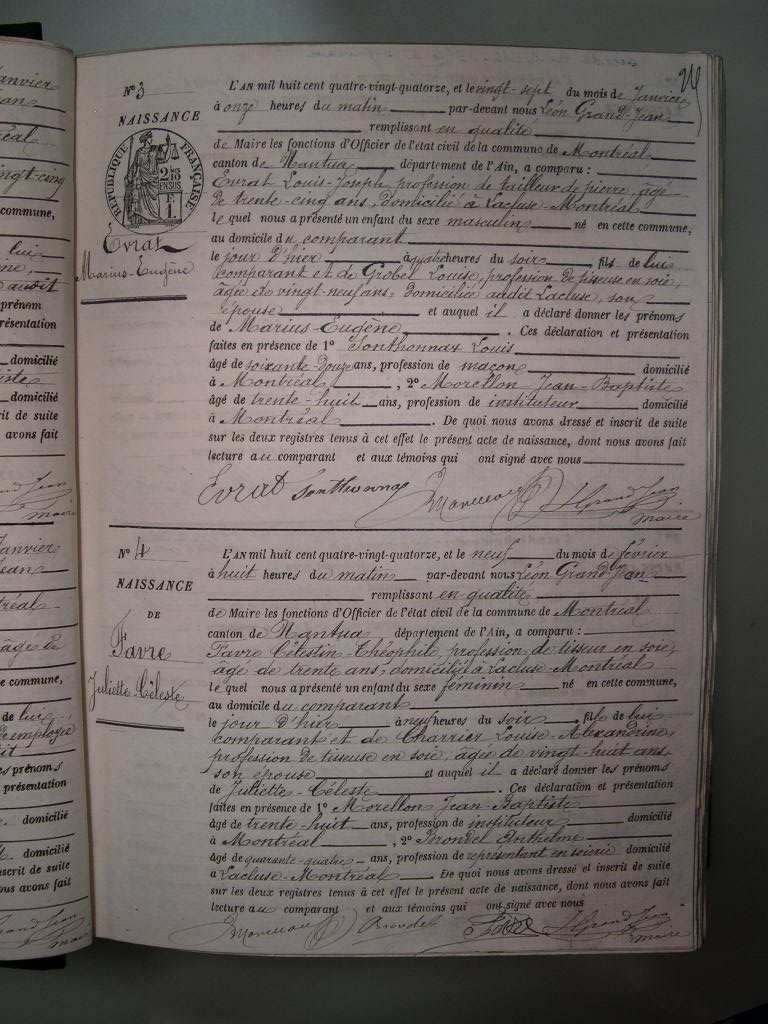 N° 3
NAISSANCE
RÉPUBLIQUE FRANÇAISE
Evrat
Marius-Eugène
L'AN mil huit cent quatre-vingt-quatorze, et le vingt-sept du mois de Janvier
à onze heures du matin par-devant nous Léon Grand-Jean
remplissant en qualité
de Maire les fonctions d'Officier de l'état civil de la commune de Montréal
canton de Nantua département de l'Ain, a comparu :
Evrat Louis-Joseph, profession de tailleur de pierre, âgé
de trente-cinq ans, domicilié à Lacluse-Montréal
lequel nous a présenté un enfant du sexe masculin né en cette commune,
au domicile du comparant
le jour d'hier à quatre heures du soir, fils de lui
comparant et de Grobel Louise, profession de tisseuse en soie,
âgée de vingt-neuf ans, domiciliée audit Lacluse, son
épouse et auquel il a déclaré donner les prénoms
de Marius-Eugène. Ces déclaration et présentation
faites en présence de 1° Sonthonnax Louis
âgé de soixante-douze ans, profession de maçon domicilié
à Montréal, 2° Morellon Jean-Baptiste
âgé de trente-huit ans, profession de instituteur domicilié
à Montréal. De quoi nous avons dressé et inscrit de suite
sur les deux registres tenus à cet effet le présent acte de naissance, dont nous avons fait
lecture au comparant et aux témoins qui ont signé avec nous
Evrat Sonthonnax Morellon L Grand Jean
maire
N° 4
NAISSANCE
DE
Favre
Juliette Céleste
L'AN mil huit cent quatre-vingt-quatorze, et le neuf du mois de février
à huit heures du matin par-devant nous Léon Grand-Jean
remplissant en qualité
de Maire les fonctions d'Officier de l'état civil de la commune de Montréal
canton de Nantua département de l'Ain, a comparu :
Favre Célestin-Théophile, profession de tisseur en soie,
âgé de trente ans, domicilié à Lacluse-Montréal
lequel nous a présenté un enfant du sexe féminin né en cette commune,
au domicile du comparant
le jour d'hier à neuf heures du soir, fils de lui
comparant et de Charrier Louise-Alexandrine,
profession de tisseuse en soie, âgée de vingt-huit ans
son épouse et auquel il a déclaré donner les prénoms
de Juliette-Céleste. Ces déclaration et présentation
faites en présence de 1° Morellon Jean-Baptiste
âgé de trente-huit ans, profession de instituteur domicilié
à Montréal, 2° Brondel Anthelme
âgé de quarante-quatre ans, profession de représentant en soierie domicilié
à Lacluse-Montréal. De quoi nous avons dressé et inscrit de suite
sur les deux registres tenus à cet effet le présent acte de naissance, dont nous avons fait
lecture au comparant et aux témoins qui ont signé avec nous
Morellon Brondel Favre L Grand Jean
maire